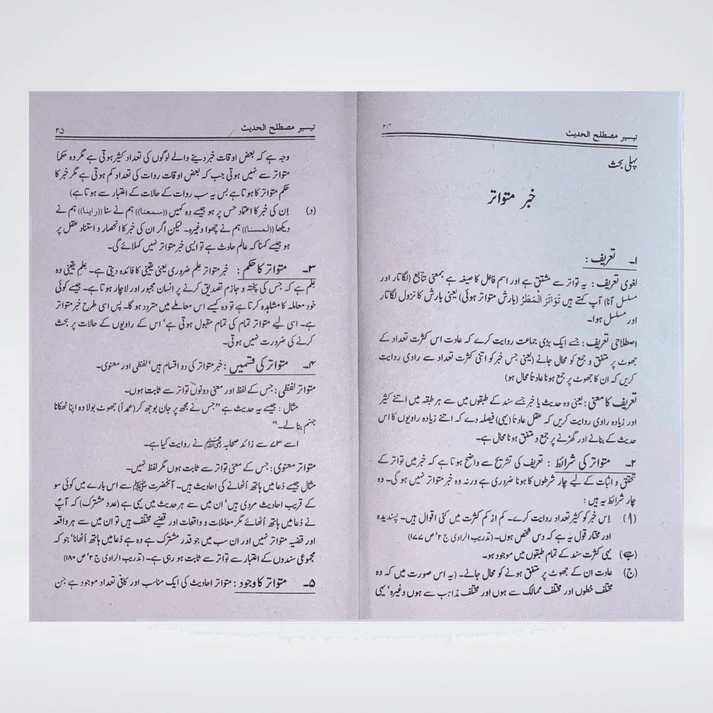 تیسیر مصطلح الحدیث
پہلی بحث
خبر متواتر
۱۔ تعریف :
لغوی تعریف : یہ تواتر سے مشتق ہے اور اسم فاعل کا صیغہ ہے بمعنی تتابع (لگاتار اور
مسلسل آنا) آپ کہتے ہیں تَوَاتَرَ الْمَطَرُ (بارش متواتر ہوئی) یعنی بارش کا نزول لگاتار
اور مسلسل ہوا۔
اصطلاحی تعریف : جسے ایک بڑی جماعت روایت کرے کہ عادت اس کثرت تعداد کے
جھوٹ پر متفق و جمع کو محال جانے (یعنی جس خبر کو اتنی کثرت تعداد سے راوی روایت
کریں کہ ان کا جھوٹ پر جمع ہونا عادتاً محال ہو)
تعریف کا معنی : یعنی وہ حدیث یا خبر جسے سند کے طبقوں میں سے ہر طبقہ میں اتنے کثیر
اور زیادہ راوی روایت کریں کہ عقل عادتاً (یہی) فیصلہ دے کہ اتنے زیادہ راویوں کا اس
حدیث کے بنانے اور گھڑنے پر جمع و متفق ہونا محال ہے۔
۲۔ متواتر کی شرائط : تعریف کی تشریح سے واضح ہوتا ہے کہ خبر میں تواتر کے
تحقق و اثبات کے لیے چار شرطوں کا ہونا ضروری ہے ورنہ وہ خبر متواتر نہیں ہوگی۔ وہ
چار شرائط یہ ہیں :
(ا) اس خبر کو کثیر تعداد روایت کرے۔ کم از کم کثرت میں کئی اقوال ہیں۔ پسندیدہ
اور مختار قول یہ ہے کہ وہ دس شخص ہوں۔ (تدریب الراوی ج ۲، ص ۱۷۷)
(ب) یہی کثرت سند کے تمام طبقوں میں موجود ہو۔
(ج) عادت ان کے جھوٹ پر متفق ہونے کو محال جانے۔ (یہ اس صورت میں کہ وہ
مختلف خطوں اور مختلف ممالک سے ہوں اور مختلف مذاہب سے ہوں وغیرہ، یہی
تیسیر مصطلح الحدیث ۲۵
وجہ ہے کہ بعض اوقات خبر دینے والے لوگوں کی تعداد کثیر ہوتی ہے مگر وہ حکماً
متواتر سے نہیں ہوتی جب کہ بعض اوقات روات کی تعداد کم ہوتی ہے مگر خبر کا
حکم متواتر کا ہوتا ہے بس یہ سب روات کے حالات کے اعتبار سے ہوتا ہے)
(د) ان کی خبر کا اعتماد حس پر ہو جیسے وہ کہیں ((سمعنا)) ہم نے سنا ((راینا)) ہم نے
دیکھا ((لمسنا)) ہم نے چھوا وغیرہ۔ لیکن اگر ان کی خبر کا انحصار و استناد عقل پر
ہو جیسے کہنا کہ عالم حادث ہے تو ایسی خبر متواتر نہیں کہلائے گی۔
۳۔ متواتر کا حکم : خبر متواتر علم ضروری یعنی یقینی کا فائدہ دیتی ہے۔ علم یقینی وہ
علم ہے کہ جس کی پختہ و جازم تصدیق کرنے پر انسان مجبور اور لاچار ہوتا ہے۔ جیسے کوئی
خود معاملہ کا مشاہدہ کرتا ہے تو وہ کیسے اس معاملے میں متردد ہو گا۔ پس اسی طرح خبر متواتر
ہے۔ اسی لیے متواتر تمام کی تمام مقبول ہوتی ہے، اس کے راویوں کے حالات پر بحث
کرنے کی ضرورت نہیں ہوتی۔
۴۔ متواتر کی قسمیں : خبر متواتر کی دو اقسام ہیں، لفظی اور معنوی۔
متواتر لفظی : جس کے لفظ اور معنی دونوں تواتر سے ثابت ہوں۔
مثال : جیسے یہ حدیث ہے ”جس نے مجھ پر جان بوجھ کر (عمداً) جھوٹ بولا وہ اپنا ٹھکانا
جہنم بنا لے۔“
اسے ۷۳ سے زائد صحابہ نے روایت کیا ہے۔
متواتر معنوی : جس کے معنی تواتر سے ثابت ہوں مگر لفظ نہیں۔
مثال جیسے دعا میں ہاتھ اٹھانے کی احادیث ہیں۔ آنحضرت ﷺ سے اس بارے میں کوئی سو
کے قریب احادیث مروی ہیں، ان میں سے ہر حدیث میں یہی ہے (عدد مشترک) کہ آپ
نے دعا میں ہاتھ اُٹھائے مگر معاملات و واقعات اور قضیے مختلف ہیں تو ان میں سے ہر واقعہ
اور قضیہ متواتر نہیں اور ان سب میں جو قدر مشترک ہے وہ ہے دعا میں ہاتھ اُٹھانا، جو کہ
مجموعی سندوں کے اعتبار سے تواتر سے ثابت ہو رہی ہے۔ (تدریب الراوی ج ۲، ص ۱۸۰)
۵۔ متواتر کا وجود : متواتر احادیث کی ایک مناسب اور کافی تعداد موجود ہے جن